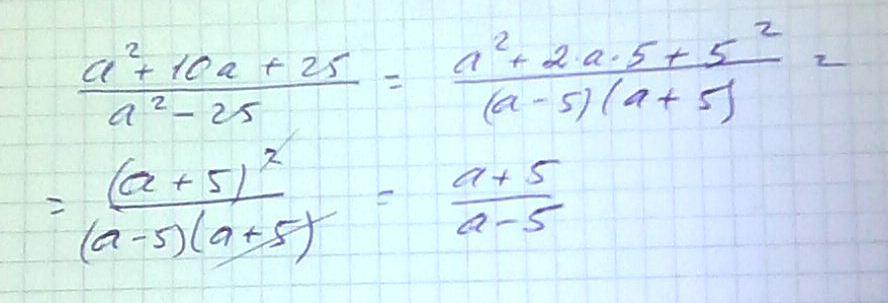 (a² + 10a + 25)/(a² - 25) = (a² + 2·a·5 + 5²)/((a - 5)(a + 5)) =
= (a + 5)²/((a - 5)(a + 5)) = (a + 5)/(a - 5)